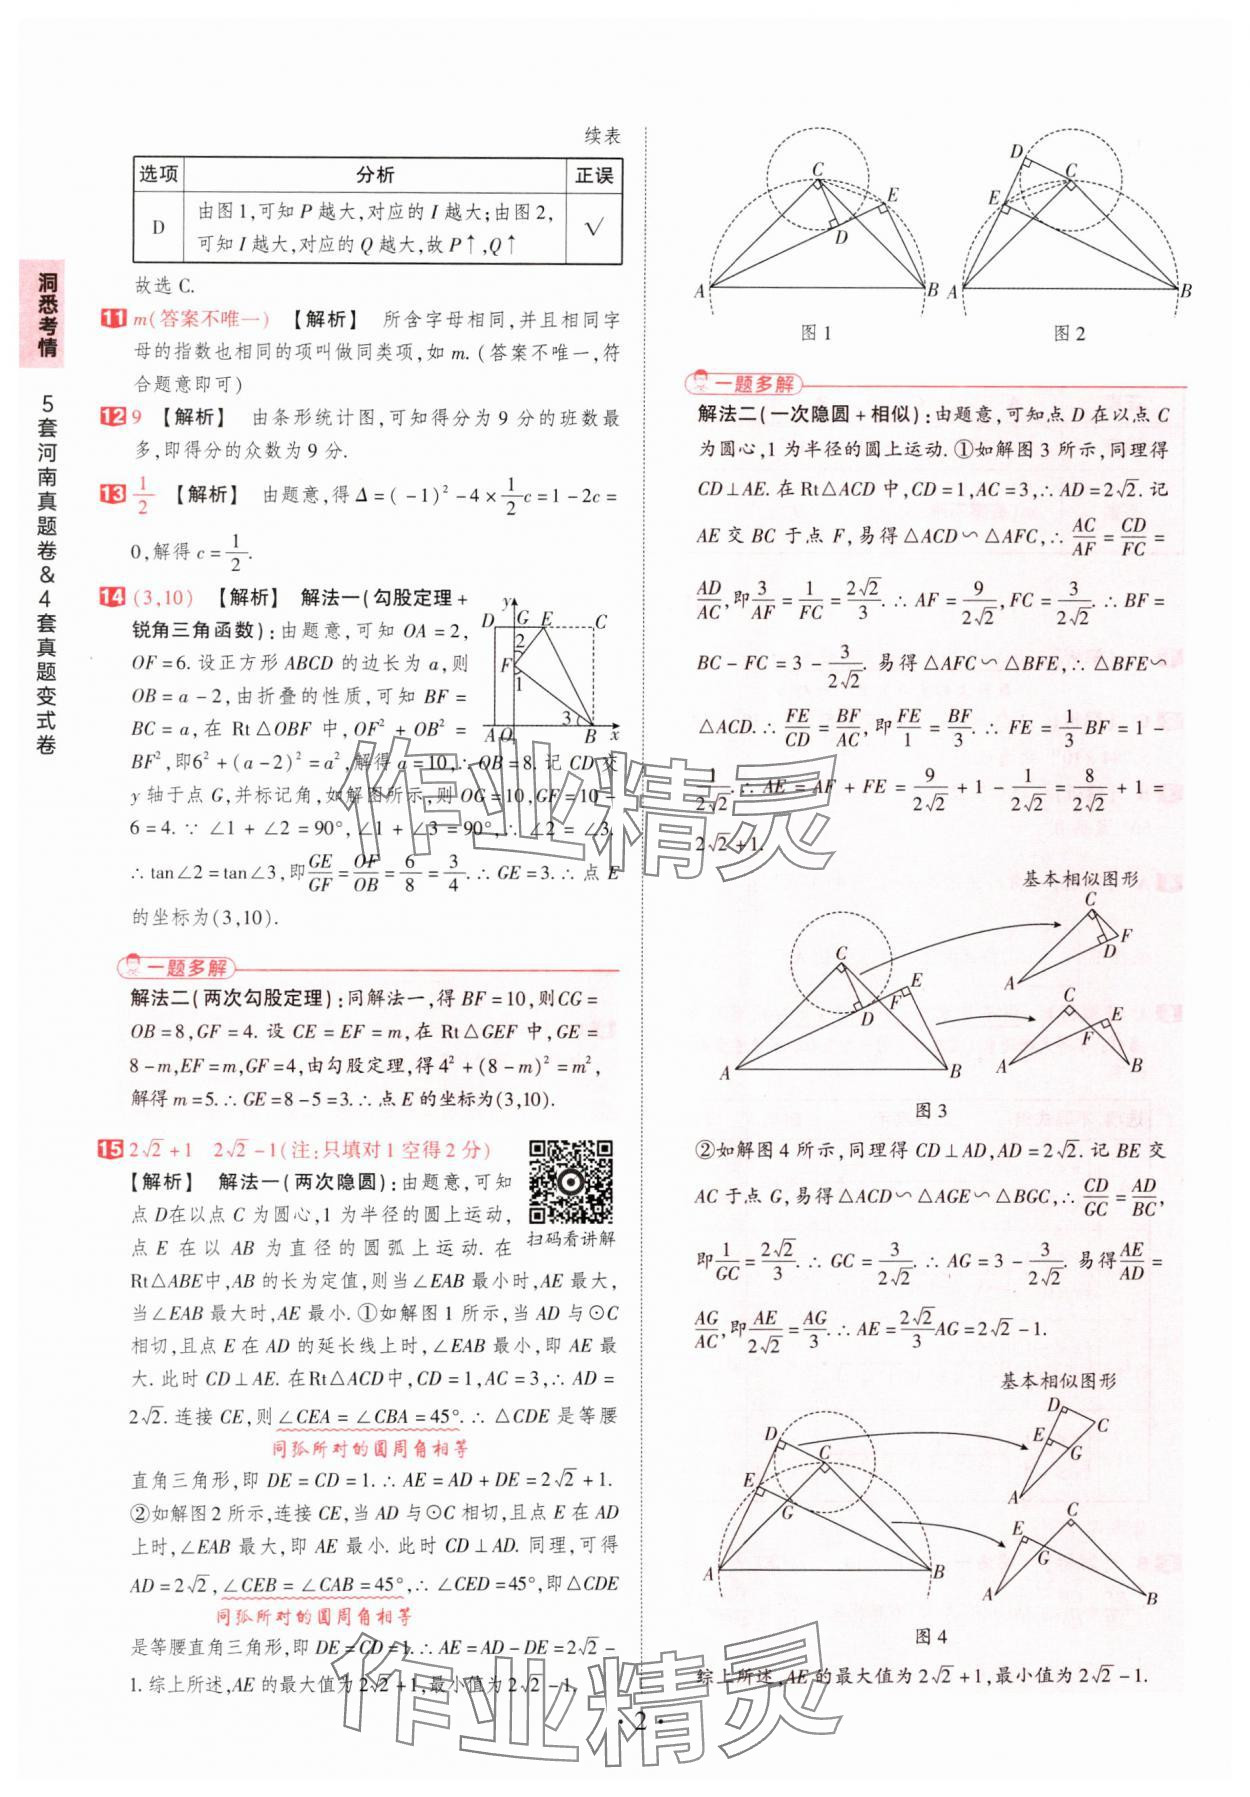 续表
选项 分析 正误
D 由图1,可知 P 越大,对应的 I 越大;由图2,
可知 I 越大,对应的 Q 越大,故 P↑,Q↑ √
故选 C.
11 m(答案不唯一) 【解析】 所含字母相同,并且相同字
母的指数也相同的项叫做同类项,如 m. (答案不唯一,符
合题意即可)
12 9 【解析】 由条形统计图,可知得分为 9 分的班数最
多,即得分的众数为 9 分.
13 1/2 【解析】 由题意,得 Δ=(-1)²-4×1/2c=1-2c=
0,解得 c=1/2.
14 (3,10) 【解析】 解法一(勾股定理+
锐角三角函数):由题意,可知 OA=2,
OF=6. 设正方形 ABCD 的边长为 a,则
OB=a-2,由折叠的性质,可知 BF=
BC=a,在 Rt△OBF 中,OF²+OB²=
BF²,即6²+(a-2)²=a²,解得 a=10,∴OB=8. 记 CD 交
y 轴于点 G,并标记角,如解图所示,则 OG=10,GF=10-
6=4. ∵∠1+∠2=90°,∠1+∠3=90°,∴∠2=∠3.
∴tan∠2=tan∠3,即GE/GF=OF/OB=6/8=3/4. ∴GE=3. ∴点 E
的坐标为(3,10).
y
D G E C
2
F
1
3
A O B x
一题多解
解法二(两次勾股定理):同解法一,得 BF=10,则CG=
OB=8,GF=4. 设 CE=EF=m,在 Rt△GEF 中,GE=
8-m,EF=m,GF=4,由勾股定理,得 4²+(8-m)²=m²,
解得 m=5. ∴GE=8-5=3. ∴点 E 的坐标为(3,10).
15 2√2+1 2√2-1(注:只填对 1 空得 2 分)
【解析】 解法一(两次隐圆):由题意,可知
点 D在以点 C 为圆心,1 为半径的圆上运动,
点 E 在以 AB 为直径的圆弧上运动. 在
扫码看讲解
Rt△ABE中,AB 的长为定值,则当∠EAB 最小时,AE 最大,
当∠EAB 最大时,AE 最小. ①如解图 1 所示,当 AD 与⊙C
相切,且点 E 在 AD 的延长线上时,∠EAB 最小,即 AE 最
大. 此时 CD⊥AE. 在Rt△ACD中,CD=1,AC=3,∴AD=
2√2. 连接 CE,则∠CEA=∠CBA=45°. ∴△CDE 是等腰
同弧所对的圆周角相等
直角三角形,即 DE=CD=1. ∴AE=AD+DE=2√2+1.
②如解图 2 所示,连接 CE,当 AD 与⊙C 相切,且点 E 在 AD
上时,∠EAB 最大,即 AE 最小. 此时 CD⊥AD. 同理,可得
AD=2√2,∠CEB=∠CAB=45°,∴∠CED=45°,即△CDE
同弧所对的圆周角相等
是等腰直角三角形,即 DE=CD=1. ∴AE=AD-DE=2√2-
1. 综上所述,AE 的最大值为 2√2+1,最小值为 2√2-1.
C E D A B
图 1
D C E A B
图 2
一题多解
解法二(一次隐圆+相似):由题意,可知点 D 在以点 C
为圆心,1 为半径的圆上运动. ①如解图 3 所示,同理得
CD⊥AE. 在 Rt△ACD 中,CD=1,AC=3,∴AD=2√2. 记
AE 交 BC 于点 F,易得△ACD∽△AFC,∴AC/AF=CD/FC=
AD/AC,即3/AF=1/FC=2√2/3. ∴AF=9/2√2,FC=3/2√2. ∴BF=
BC-FC=3-3/2√2. 易得△AFC∽△BFE,∴△BFE∽
△ACD. ∴FE/CD=BF/AC,即FE/1=BF/3. ∴FE=1/3BF=1-
1/2√2. ∴AE=AF+FE=9/2√2+1-1/2√2=8/2√2+1=
2√2+1.
基本相似图形
C D E F A B
C F D A
C E F A B
图 3
②如解图 4 所示,同理得 CD⊥AD,AD=2√2. 记 BE 交
AC 于点 G,易得△ACD∽△AGE∽△BGC,∴CD/GC=AD/BC,
即1/GC=2√2/3. ∴GC=3/2√2. ∴AG=3-3/2√2. 易得AE/AD=
AG/AC,即AE/2√2=AG/3. ∴AE=2√2/3AG=2√2-1.
基本相似图形
D C E G A B
D C E G A
C E G A B
图 4
综上所述,AE 的最大值为 2√2+1,最小值为 2√2-1.
洞悉考情
5套河南真题卷&4套真题变式卷
作业精灵
作业精灵
· 2 ·